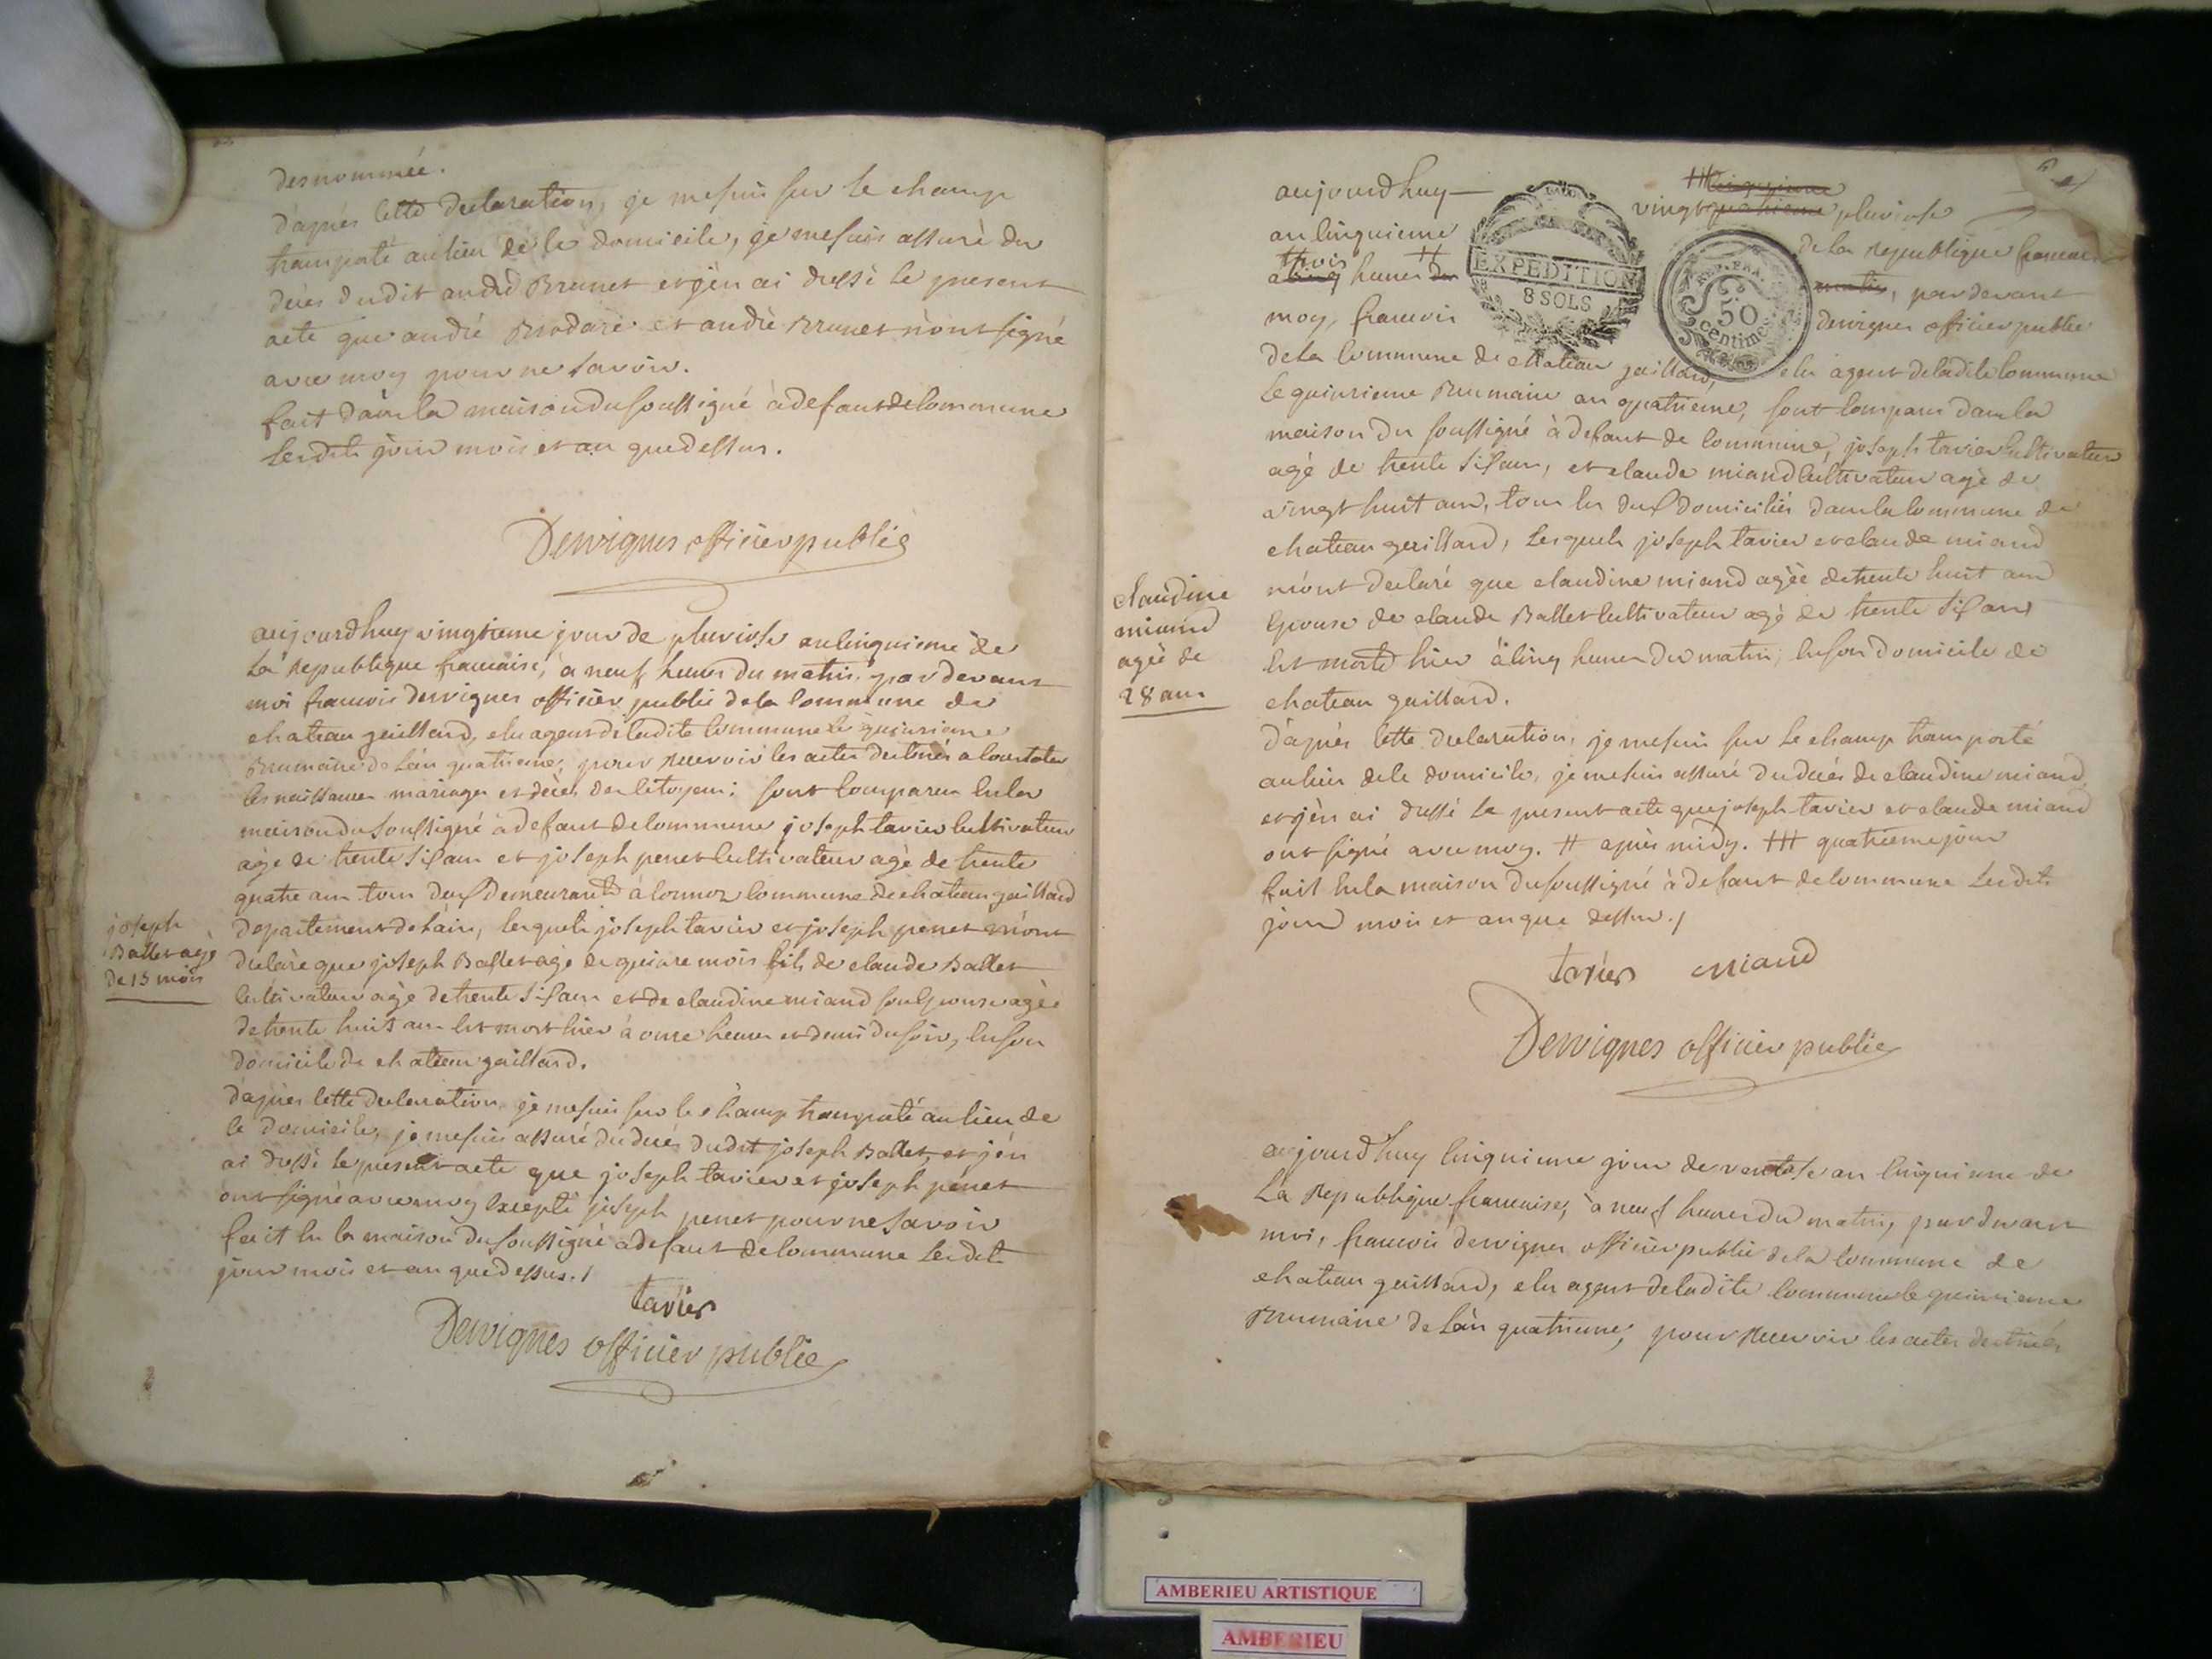 desnommée.
d'après cette declaration, je mesuis sur le champ
transporté au lieu de ce domicile, je mesuis assuré du
decès dudit andré Brunet et j'en ai dressé le present
acte que andré et andré Brunet n'ont signé
avec moy pour ne savoir.
fait dans la maison du soussigné à defaut de commune
lesdits jour mois et an que dessus.
Dervignes officier public
aujourdhuy vingtieme jour de pluviose an cinquieme de
la Republique francaise, a neuf heures du matin, pardevant
moi francois dervignes officier public de la commune de
chateau gaillard, elu agent deladite commune le quinsieme
Brumaire de l'an quatrieme, pour recevoir les actes destinés a constater
les naissances mariages et décès des citoyens; sont comparus en la
maison du soussigné à defaut de commune joseph tavier cultivateur
agé de trente six ans et joseph penet cultivateur agé de trente
quatre ans tous deux demeurants à cormoz commune de chateau gaillard
departement de l'ain, lesquels joseph tavier et joseph penet m'ont
declaré que joseph Ballet agé de quinze mois fils de claude Ballet
cultivateur agé de trente six ans et de claudine miand son epouse agée
de trente huit ans est mort hier à onse heures et demi du soir, en son
domicile de chateau gaillard.
d'après cette declaration je mesuis sur le champ transporté au lieu de
ce domicile, je mesuis assuré du decès dudit joseph Ballet et j'en
ai dressé le present acte que joseph tavier et joseph penet
ont signé avec moy excepté joseph penet pour ne savoir
fait en la maison du soussigné à defaut de commune lesdits
jour mois et an que dessus./
tavier
Dervignes officier public
joseph
Ballet agé
de 15 mois
aujourdhuy vingt pluviose
an cinquieme de la republique francaise
trois
a cinq heures du matin, pardevant
moy, francois dervignes officier public
EXPEDITION
8 SOLS
REP. FRA.
50
centimes
de la commune de chateau gaillard, elu agent deladite commune
le quinsieme Brumaire an quatrieme, sont comparus dans la
maison du soussigné à defaut de commune, joseph tavier cultivateur
agé de trente six ans, et claude miand cultivateur agé de
vingt huit ans, tous les deux domiciliés dans la commune de
chateau gaillard, lesquels joseph tavier et claude miand
m'ont declaré que claudine miand agée de trente huit ans
epouse de claude Ballet cultivateur agé de trente six ans
est morte hier à cinq heures du matin, en son domicile de
chateau gaillard.
d'après cette declaration, je mesuis sur le champ transporté
au lieu de ce domicile, je mesuis assuré du decès de claudine miand
et j'en ai dressé le present acte que joseph tavier et claude miand
ont signé avec moy. # après midy. ## quatrieme jour
fait en la maison du soussigné à defaut de commune lesdits
jour mois et an que dessus./
tavier miand
Dervignes officier public
claudine
miand
agée de
28 ans
aujourdhuy cinquieme jour de ventose an cinquieme de
la Republique francaise, à neuf heures du matin, pardevant
moi, francois dervignes officier public de la commune de
chateau gaillard, elu agent deladite commune le quinsieme
Brumaire de l'an quatrieme, pour recevoir les actes destinés
AMBERIEU ARTISTIQUE
AMBERIEU